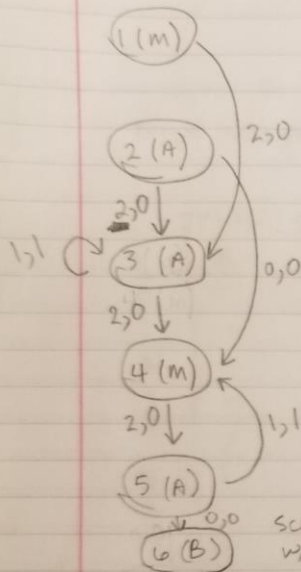 1 (M)
2,0
2 (A)
2,0
1,1
3 (A)
0,0
2,0
4 (M)
2,0
1,1
5 (A)
0,0
6 (B)